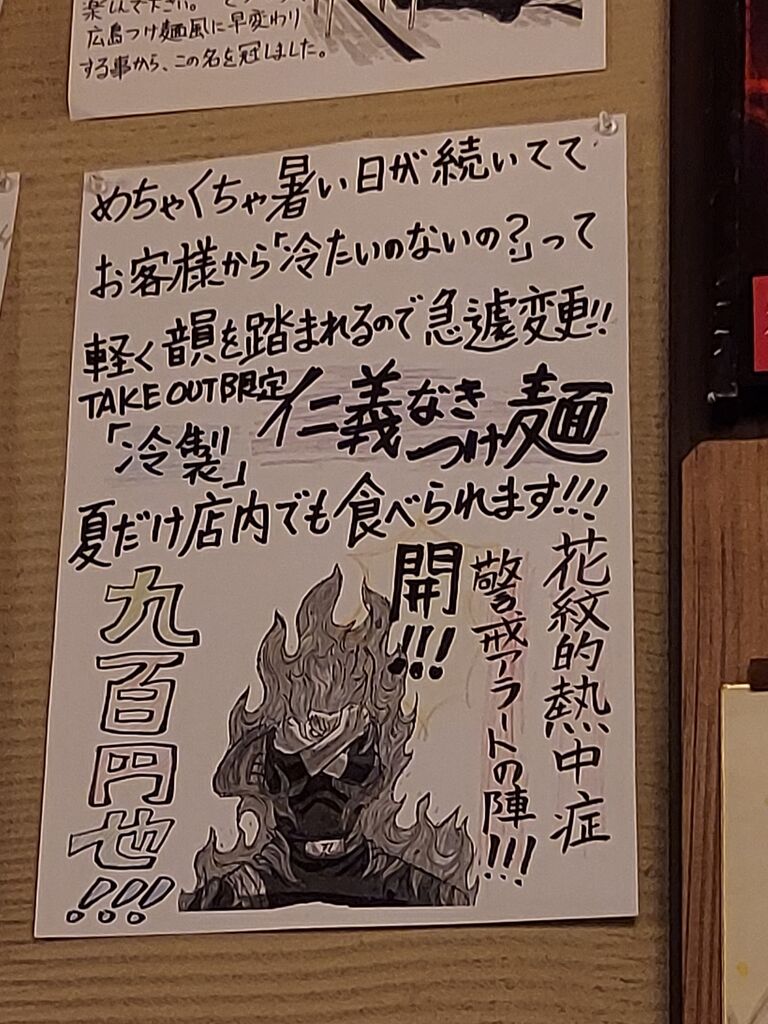 楽しんで下さい。
広島つけ麺風に早変わり
する事から、この名を冠しました。
めちゃくちゃ暑い日が続いてて
お客様から「冷たいのないの?」って
軽く韻を踏まれるので急遽変更!!
TAKE OUT限定
「冷製」
仁義なき
つけ麺
夏だけ店内でも食べられます!!!
花紋的熱中症
警戒アラートの陣!!!
開!!!
九百円也!!!